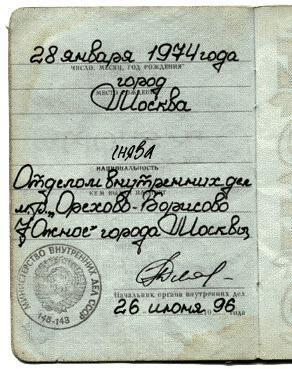 28 января 1974 года
ЧИСЛО, МЕСЯЦ, ГОД РОЖДЕНИЯ
город
МЕСТО РОЖДЕНИЯ
Москва
НАЦИОНАЛЬНОСТЬ
Отделом внутренних дел
КЕМ ВЫДАН ПАСПОРТ
м.р. „Орехово-Борисово
Южное" города Москвы
МИНИСТЕРСТВО ВНУТРЕННИХ ДЕЛ СССР
Начальник органа внутренних дел
26 июня 96 года